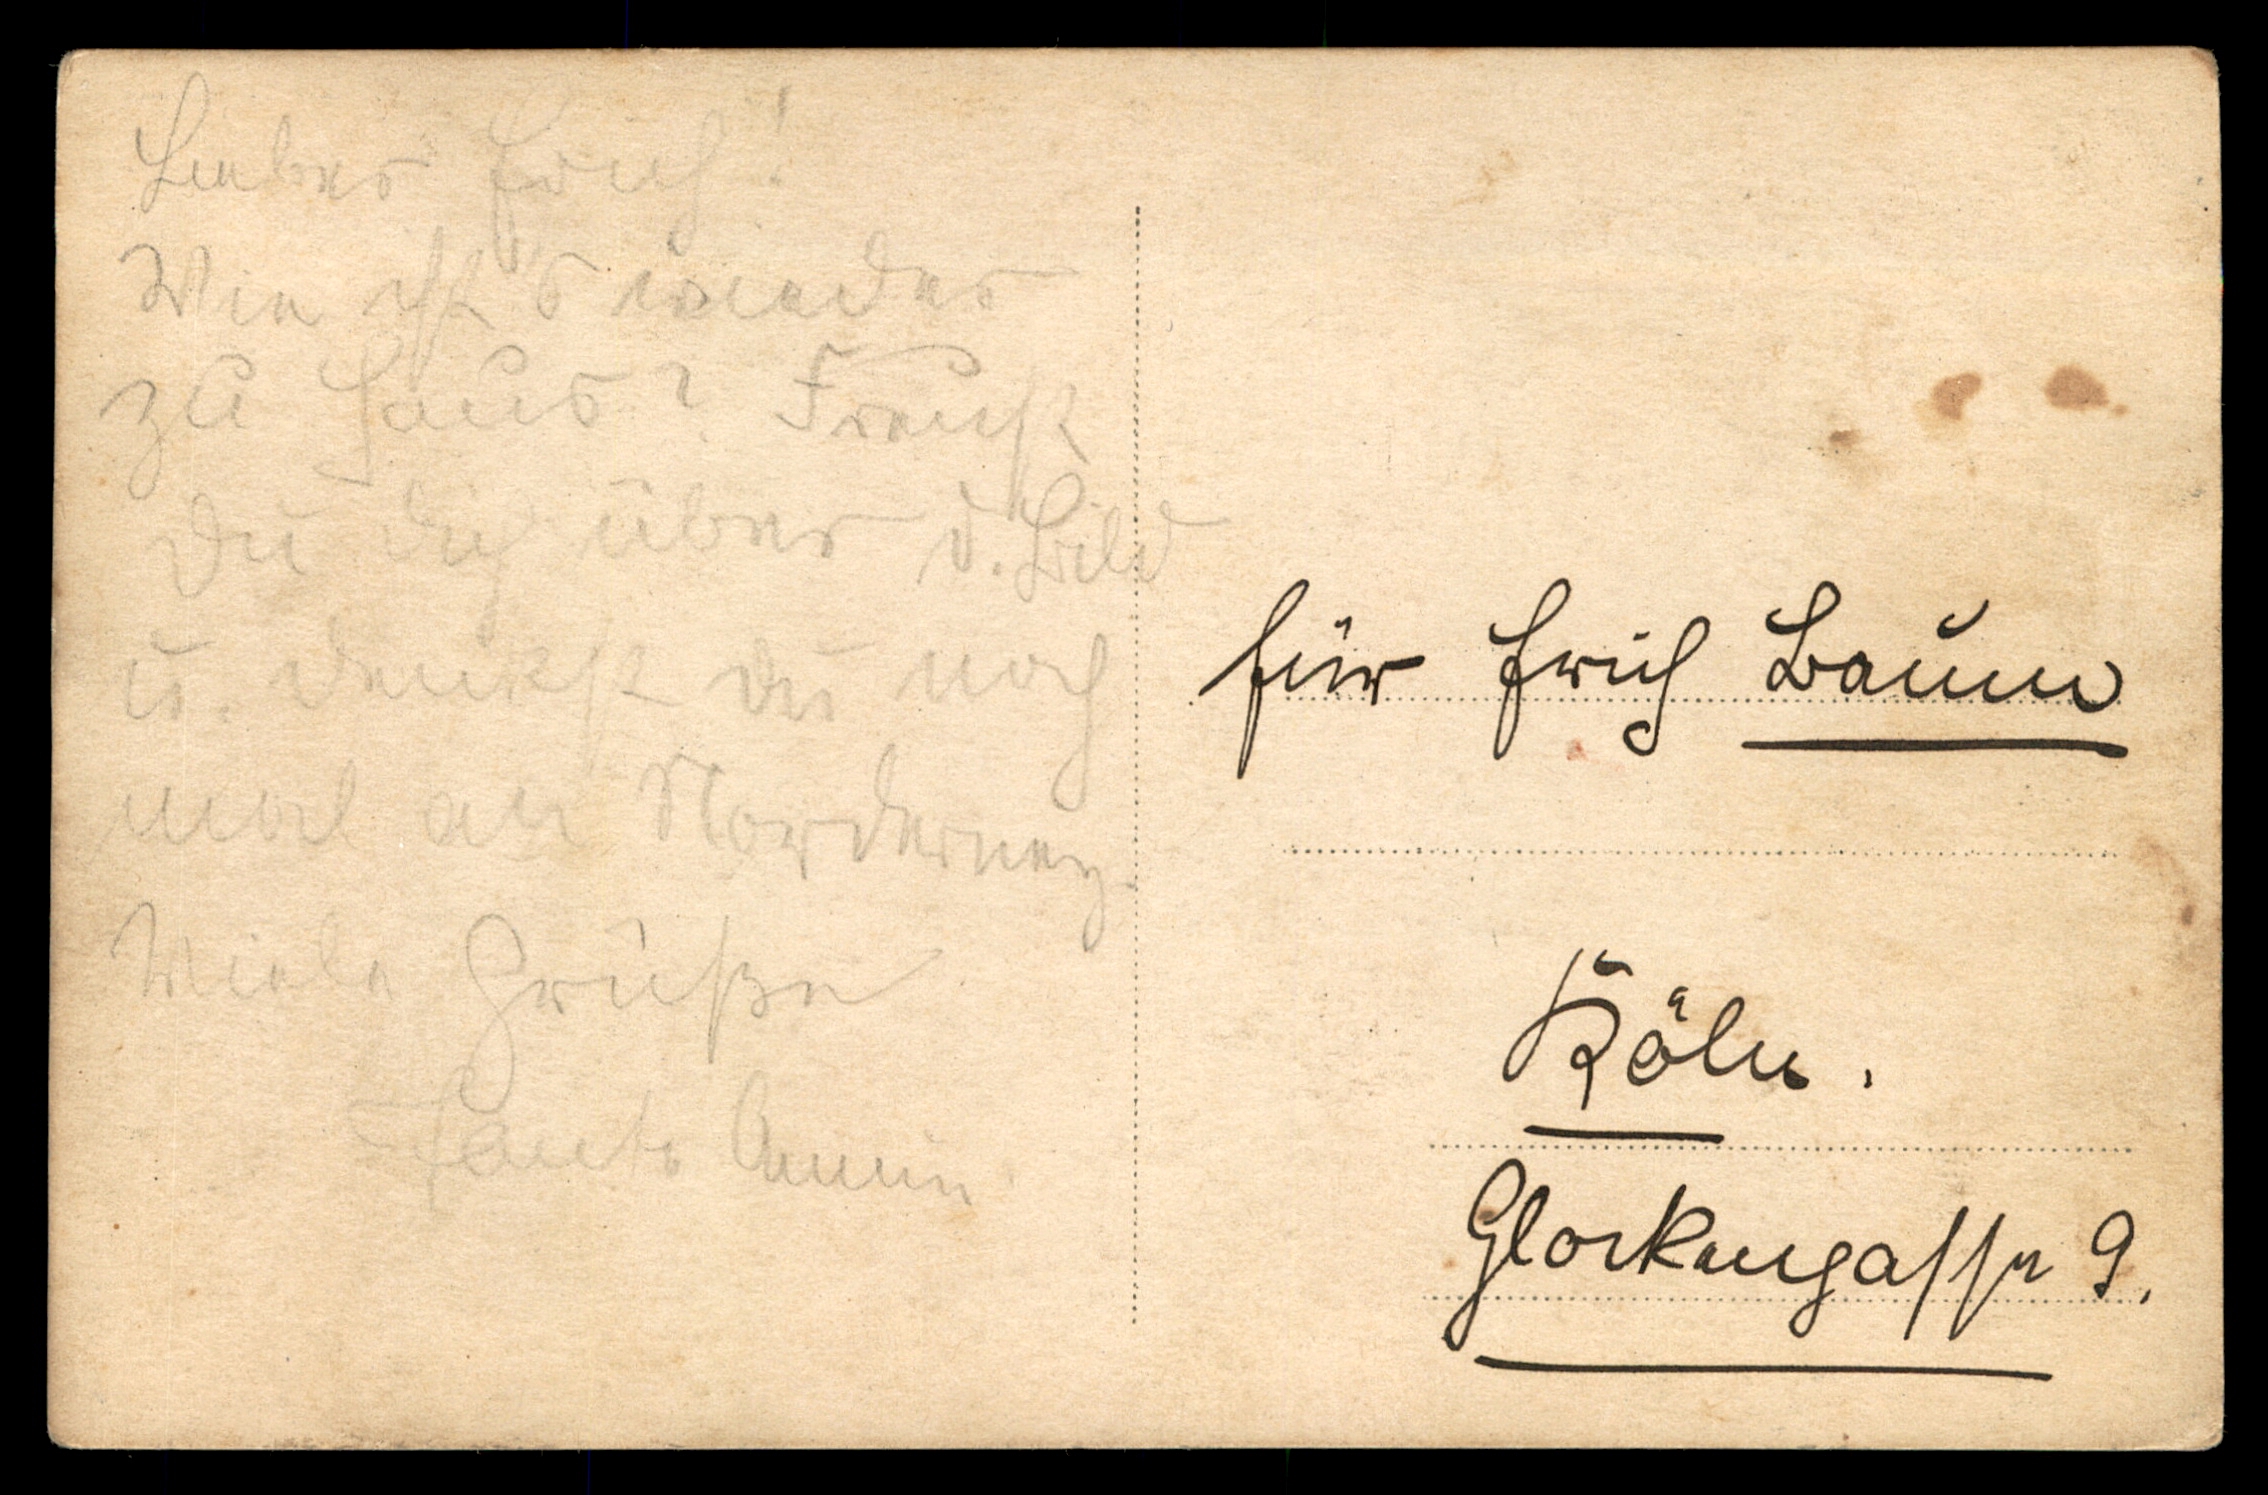 Lieber Erich!
Wie ist's wieder
zu Haus? Freust
Du dich über d. Bild
u. denkst du noch
mal an Norderney.
Viele Grüße
Tante Ännin
für Erich Baum
Köln.
Glockengasse 9.